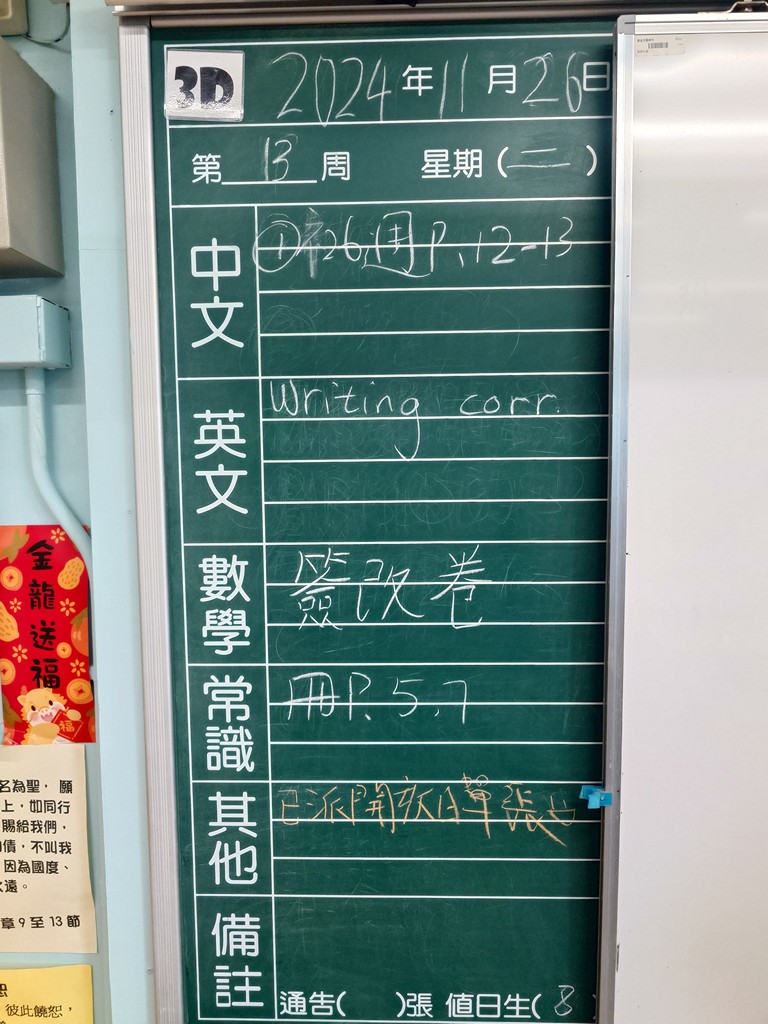 3D
2024年11月26日
第13周 星期(二)
中文
①补26週P.12-13
英文
Writing corr.
數學
簽改卷
常識
冊P.5,7
其他
已派開放日單張
備註
通告( )張 值日生(8
金龍送福
名為聖，願
上，如同行
賜給我們，
債，不叫我
因為國度、
遠。
章9至13節
恕
彼此饒恕，